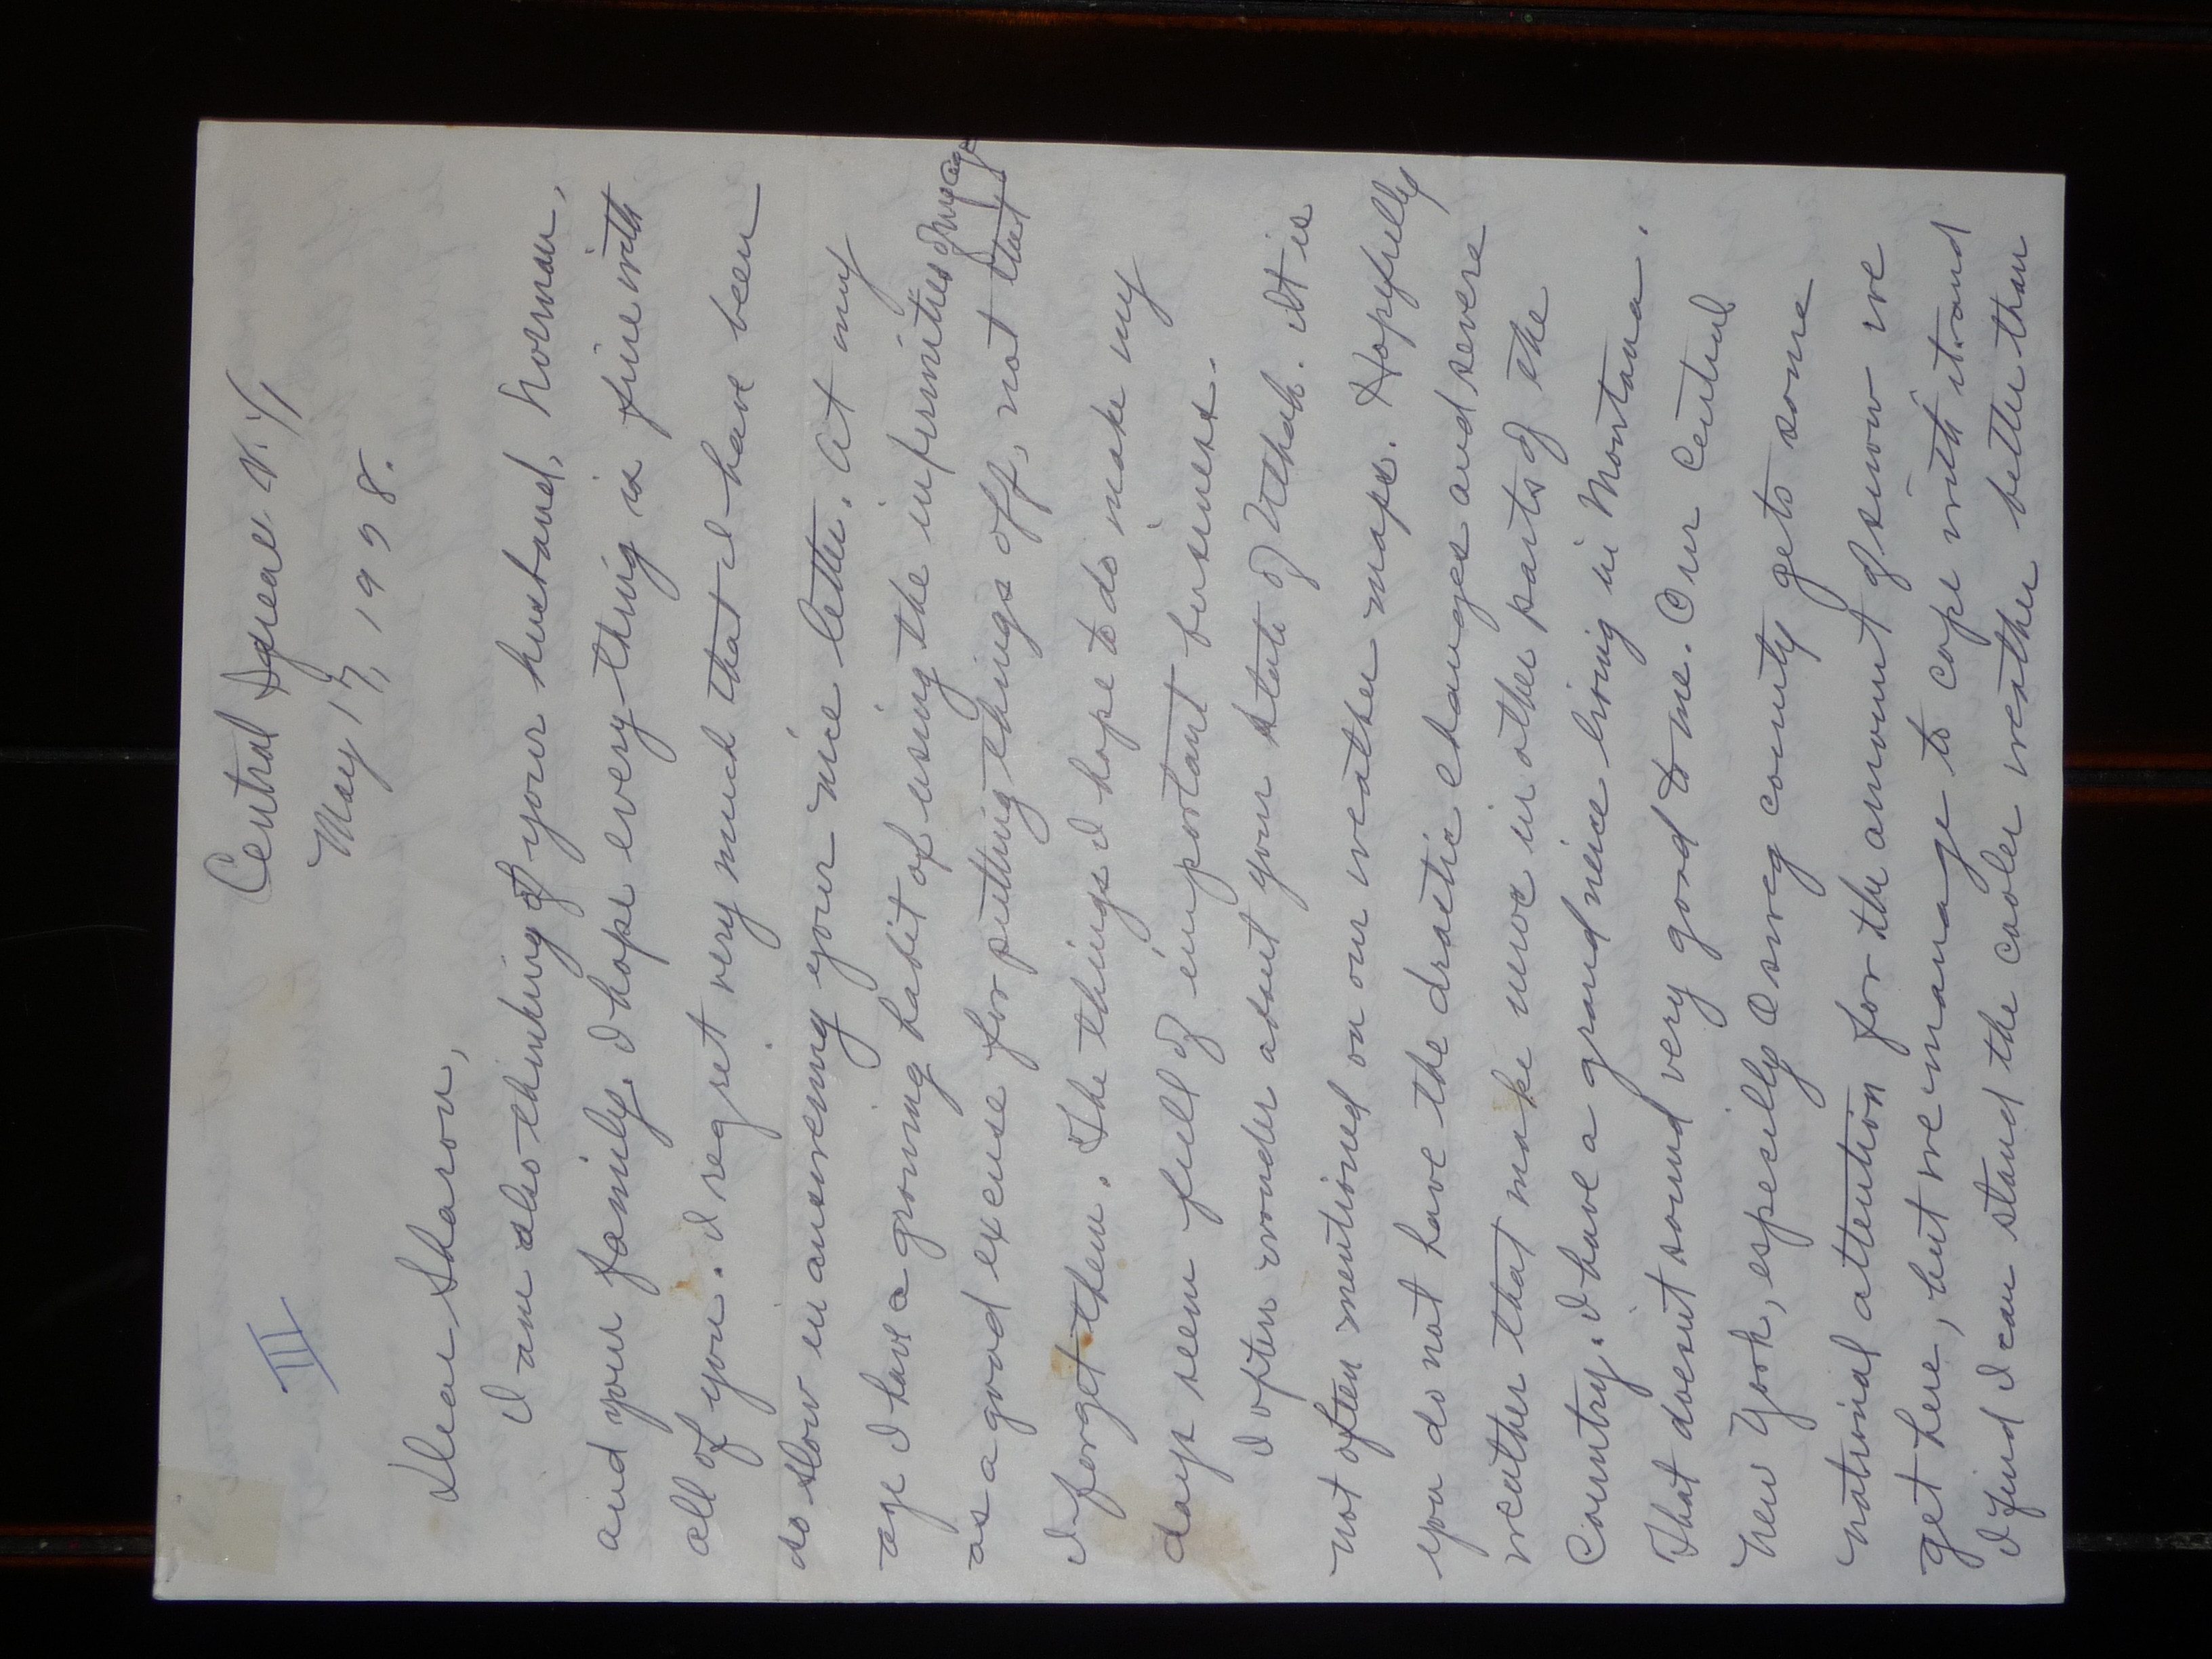 III
Central Square N.Y.
May 17, 1998.
Dear Sharon,
I am also thinking of your husband, Norman,
and your family. I hope every-thing is fine with
all of you. I regret very much that I have been
so slow in answering your nice letter. At my
age I have a growing habit of using the infirmities of my age
as a good excuse for putting things off, not that
I forget them. The things I hope to do make my
days seem full of important business.
I often wonder about your state of Utah. It is
not often mentioned on our weather maps. Hopefully
you do not have the drastic changes and severe
weather that make news in other parts of the
Country. I have a grand niece living in Montana.
That doesnt sound very good to me. Our Central
New York, especially Osweg county gets some
national attention for the amount of snow we
get here, but we manage to cope with it and
I find I can stand the cooler weather better than